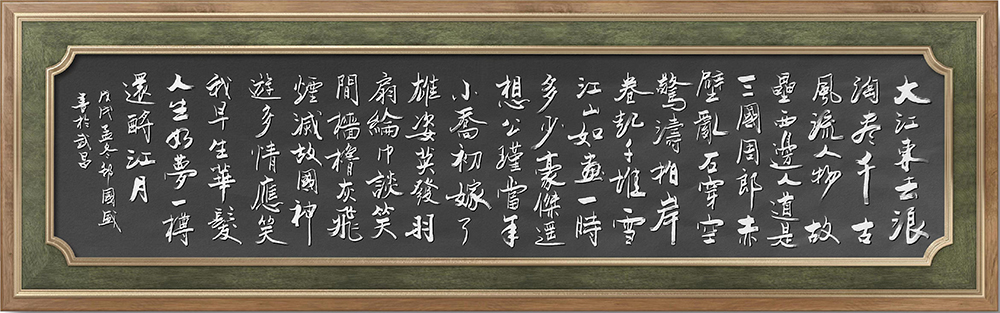 大江東去浪
淘尽千古
風流人物故
壘西邊人道是
三國周郎赤
壁亂石穿空
驚濤拍岸
卷起千堆雪
江山如畫一時
多少豪傑遥
想公瑾當年
小喬初嫁了
雄姿英發羽
扇綸巾談笑
間檣櫓灰飛
煙滅故國神
遊多情應笑
我早生華髮
人生如夢一樽
還酹江月
戊戌孟冬胡國盛
書於武昌